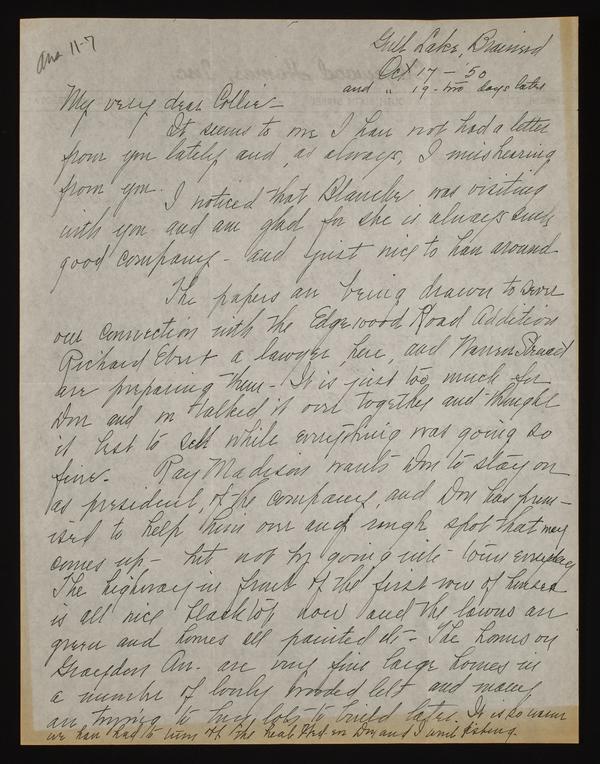 Ans 11-7
Gull Lake, Brainerd
Oct 17 - '50
and " 19 - two days later
My very dear Collie -
It seems to me I have not had a letter
from you lately and, as always, I miss hearing
from you. I noticed that Blanche was visiting
with you and am glad for she is always such
good company - and just nice to have around.
The papers are being drawn to sever
our connection with the Edgewood Road Addition
Richard Ebert a lawyer here, and Warren
are preparing them - It is just too much for
Don and we talked it over together and thought
it best to sell while everything was going so
fine. Ray Madison wants Don to stay on
as president, of the company, and Don has prom-
ised to help them over any rough spot that may
come up - but not by going into town every day
The highway in front of the first row of houses
is all nice black top now and the lawns are
green and homes all painted etc - The homes on
Graydon Av. are very fine large homes in
a number of lovely wooded lots and many
are trying to buy lots to build later. It is so warm
we have had to turn off the heat and Don and I went fishing.